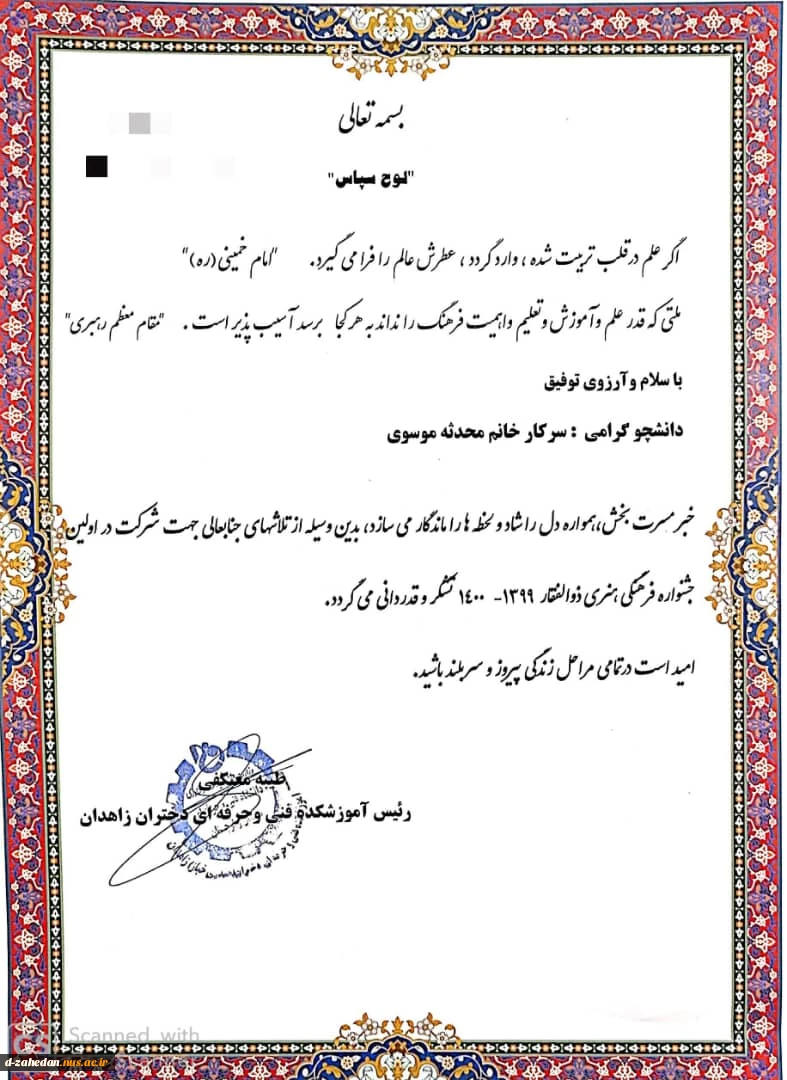 بسمه تعالی
"لوح سپاس"
اگر علم در قلب تربیت شده ، وارد گردد ، عطرش عالم را فرا می گیرد. "امام خمینی (ره)"
ملتی که قدر علم و آموزش و تعلیم واهمیت فرهنگ را نداند به هر کجا برسد آسیب پذیر است . "مقام معظم رهبری"
با سلام وآرزوی توفیق
دانشجو گرامی : سرکار خانم محدثه موسوی
خبر مسرت بخش،همواره دل را شاد و لحظه ها را ماندگار می سازد، بدین وسیله از تلاشهای جنابعالی جهت شرکت در اولین
جشنواره فرهنگی هنری ذوالفقار ۱۳۹۹- ۱۴۰۰ تشکر و قدردانی می گردد.
امید است در تمامی مراحل زندگی پیروز و سربلند باشید.
طیبه معتکفی
رئیس آموزشکده فنی وحرفه ای دختران زاهدان
Scanned with
d-zahedan.nus.ac.ir